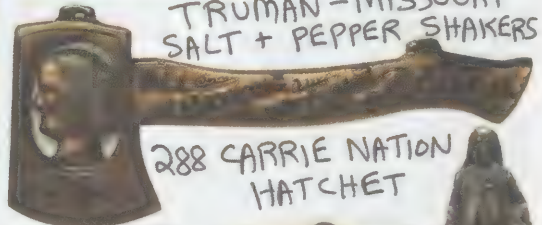 TRUMAN - MISSOURI
SALT + PEPPER SHAKERS
288 CARRIE NATION
HATCHET